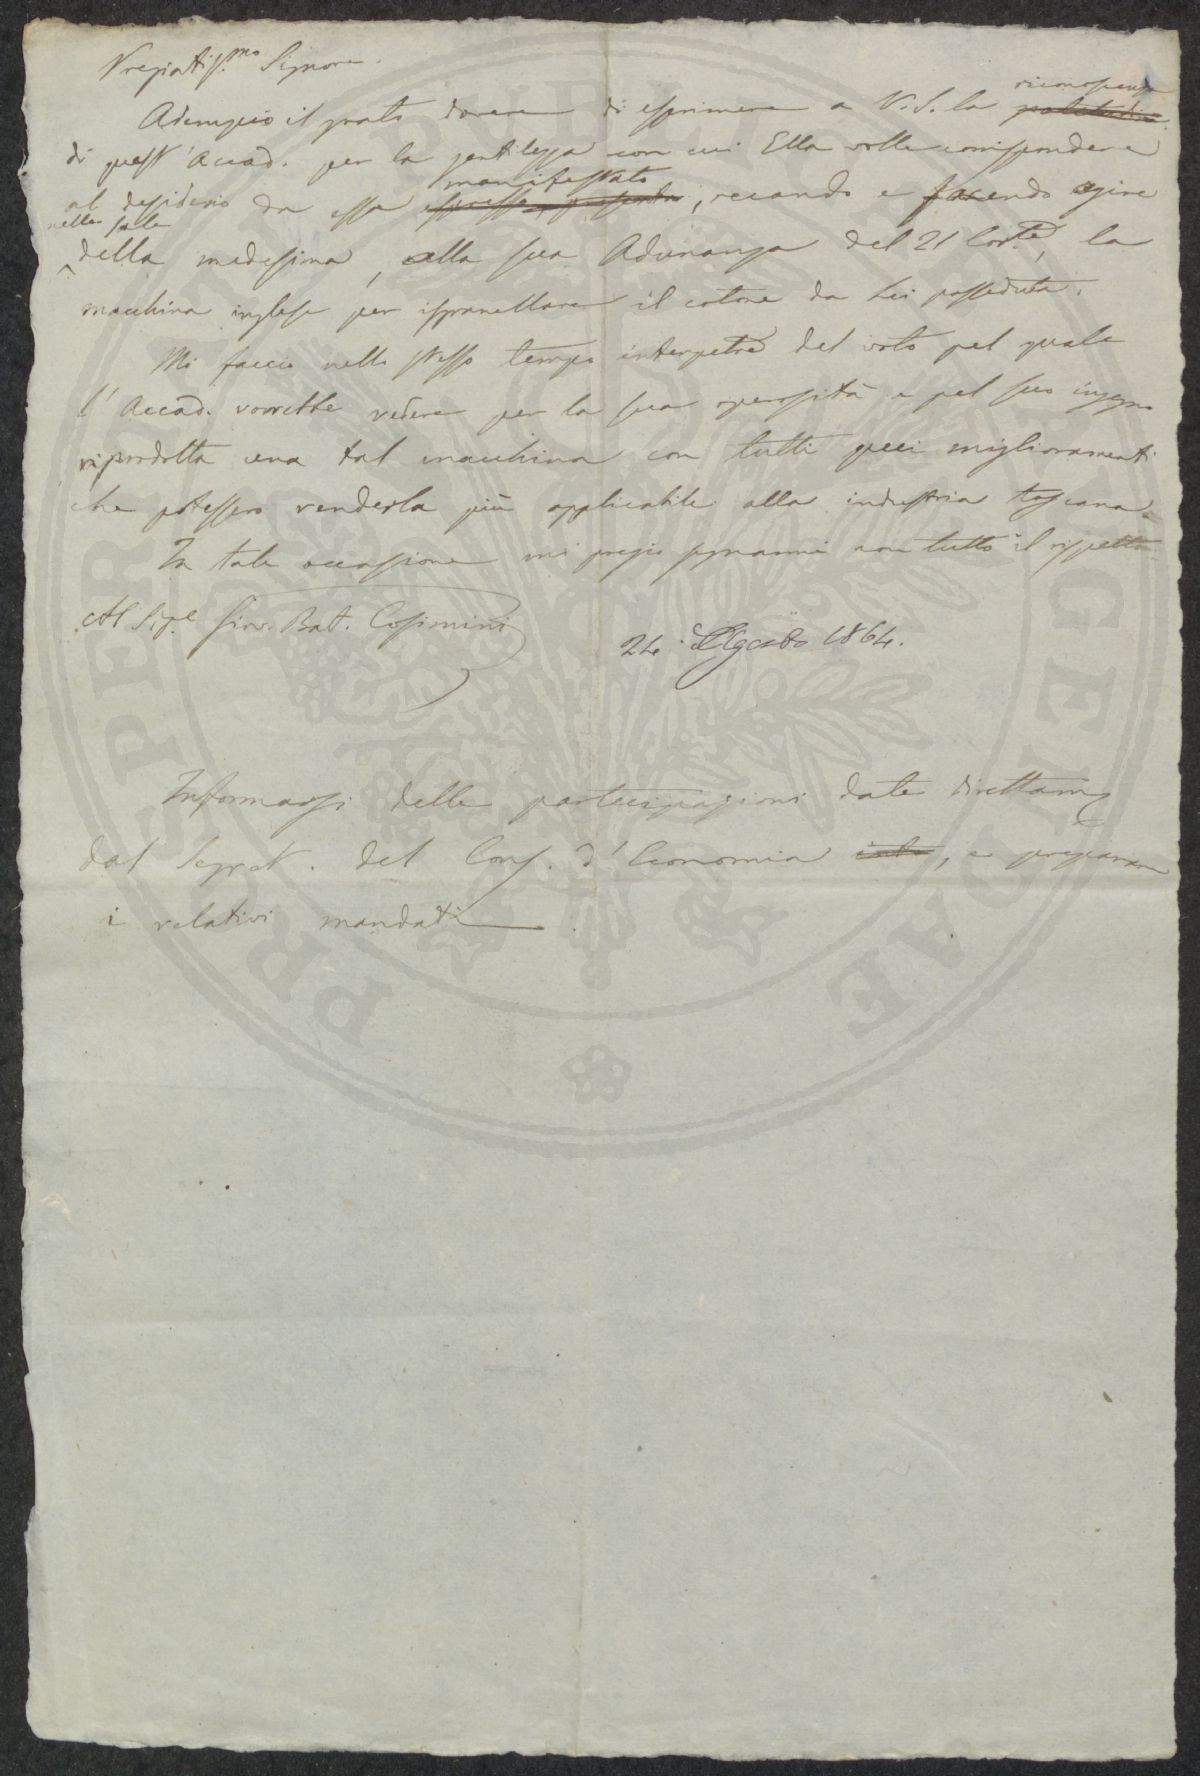 Pregiatis.mo Signore.
riconoscenza
Adempio il grato dovere di esprimere a V.S. la gratitudine
di quest'Accad. per la gentilezza con cui Ella volle corrispondere
manifestato
al desiderio da essa espresso, recando e facendo agire
nelle sale
della medesima, alla sua Adunanza del 21 Corr.te, la
macchina inglese per isgranellare il cotone da Lei posseduta.
Mi faccio nello stesso tempo interpetre del voto pel quale
l'Accad. vorrebbe vedere per la sua operosità e pel suo ingegno
riprodotta una tal macchina con tutti quei miglioramenti
che potessero renderla più applicabile alla industria toscana.
In tale occasione mi pregio segnarmi con tutto il rispetto
Al Sig.e Giov. Bat. Cosimini
24 Agosto 1864.
Informarsi delle partecipazioni date direttam.
dal Segret. del Cons. d'Economia, e preparare
i relativi mandati
PROSPERITATI PUBLICAE AUGENDAE